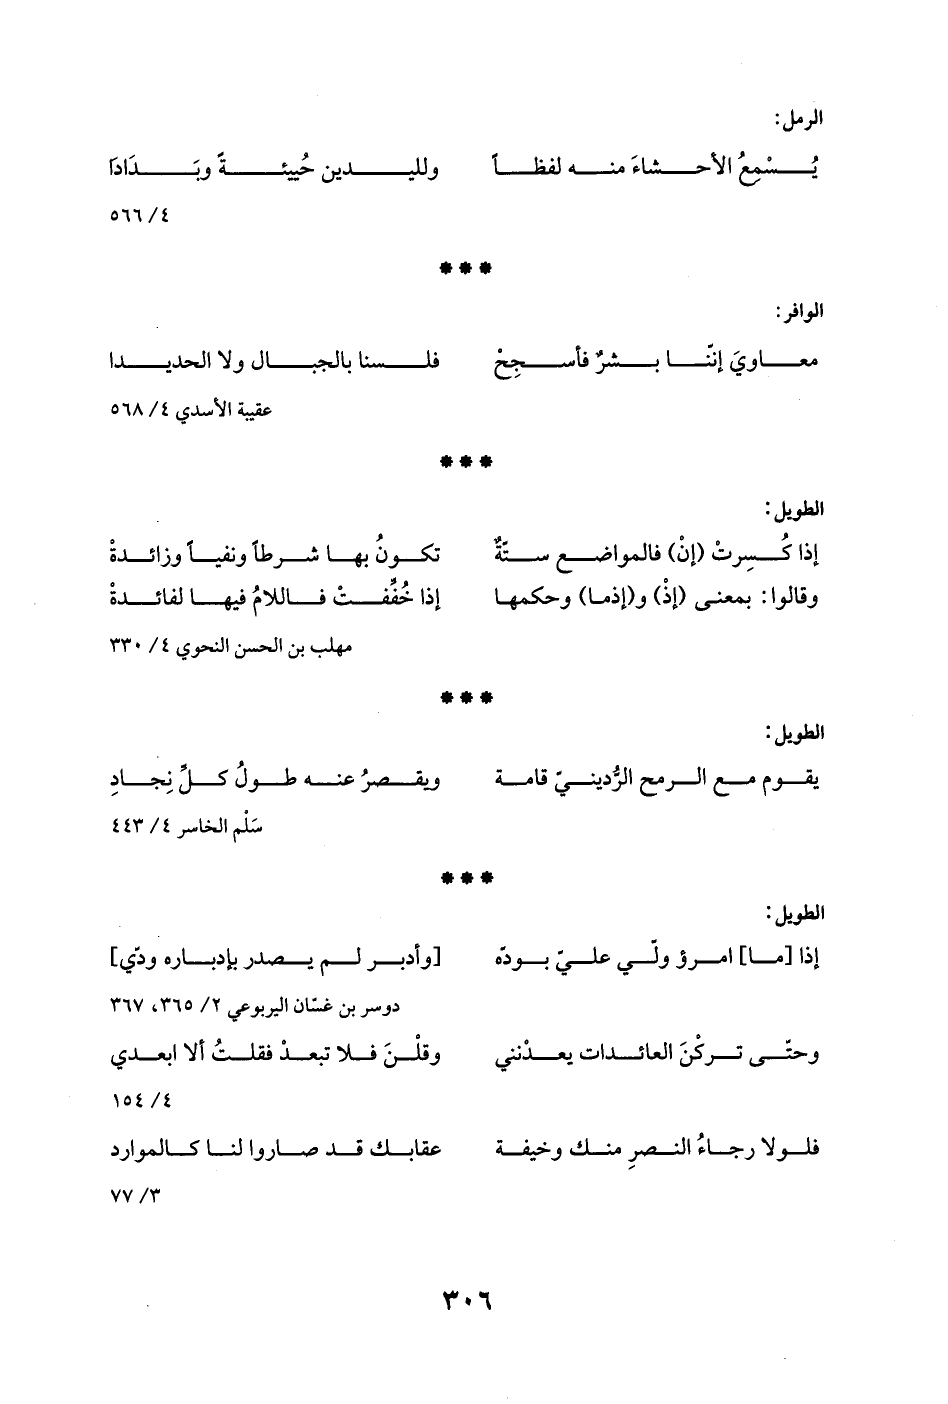 الرمل:
يُسْمِعُ الأحشاءَ منه لفظاً ولليدين خُيئةً وبَدَادَا
٤/ ٥٦٦
***
الوافر:
معاويَ إنّنا بشرٌ فأسجِحْ فلسنا بالجبال ولا الحديدا
عقيبة الأسدي ٤/ ٥٦٨
***
الطويل:
إذا كُسِرتْ (إنْ) فالمواضع ستّةٌ تكونُ بها شرطاً ونفياً وزائدةْ
وقالوا: بمعنى (إذْ) و(إذما) وحكمها إذا خُفِّفتْ فاللامُ فيها لفائدةْ
مهلب بن الحسن النحوي ٤/ ٣٣٠
***
الطويل:
يقوم مع الرمح الرُّدينيّ قامة ويقصرُ عنه طولُ كلِّ نِجادِ
سَلْم الخاسر ٤/ ٤٤٣
***
الطويل:
إذا [ما] امرؤ ولّي عليّ بودّه [وأدبر لم يصدر بإدباره ودّي]
دوسر بن غسّان اليربوعي ٢/ ٣٦٥، ٣٦٧
وحتّى تركْنَ العائدات يعدْنني وقلْنَ فلا تبعدْ فقلتُ ألا ابعدي
٤/ ١٥٤
فلولا رجاءُ النصرِ منك وخيفة عقابك قد صاروا لنا كالموارد
٣/ ٧٧
٣٠٦